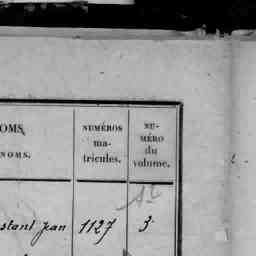 OMS,
NOMS.
NUMÉROS
ma-
tricules.
NU-
MÉRO
du
volume.
stant Jean 1127 3